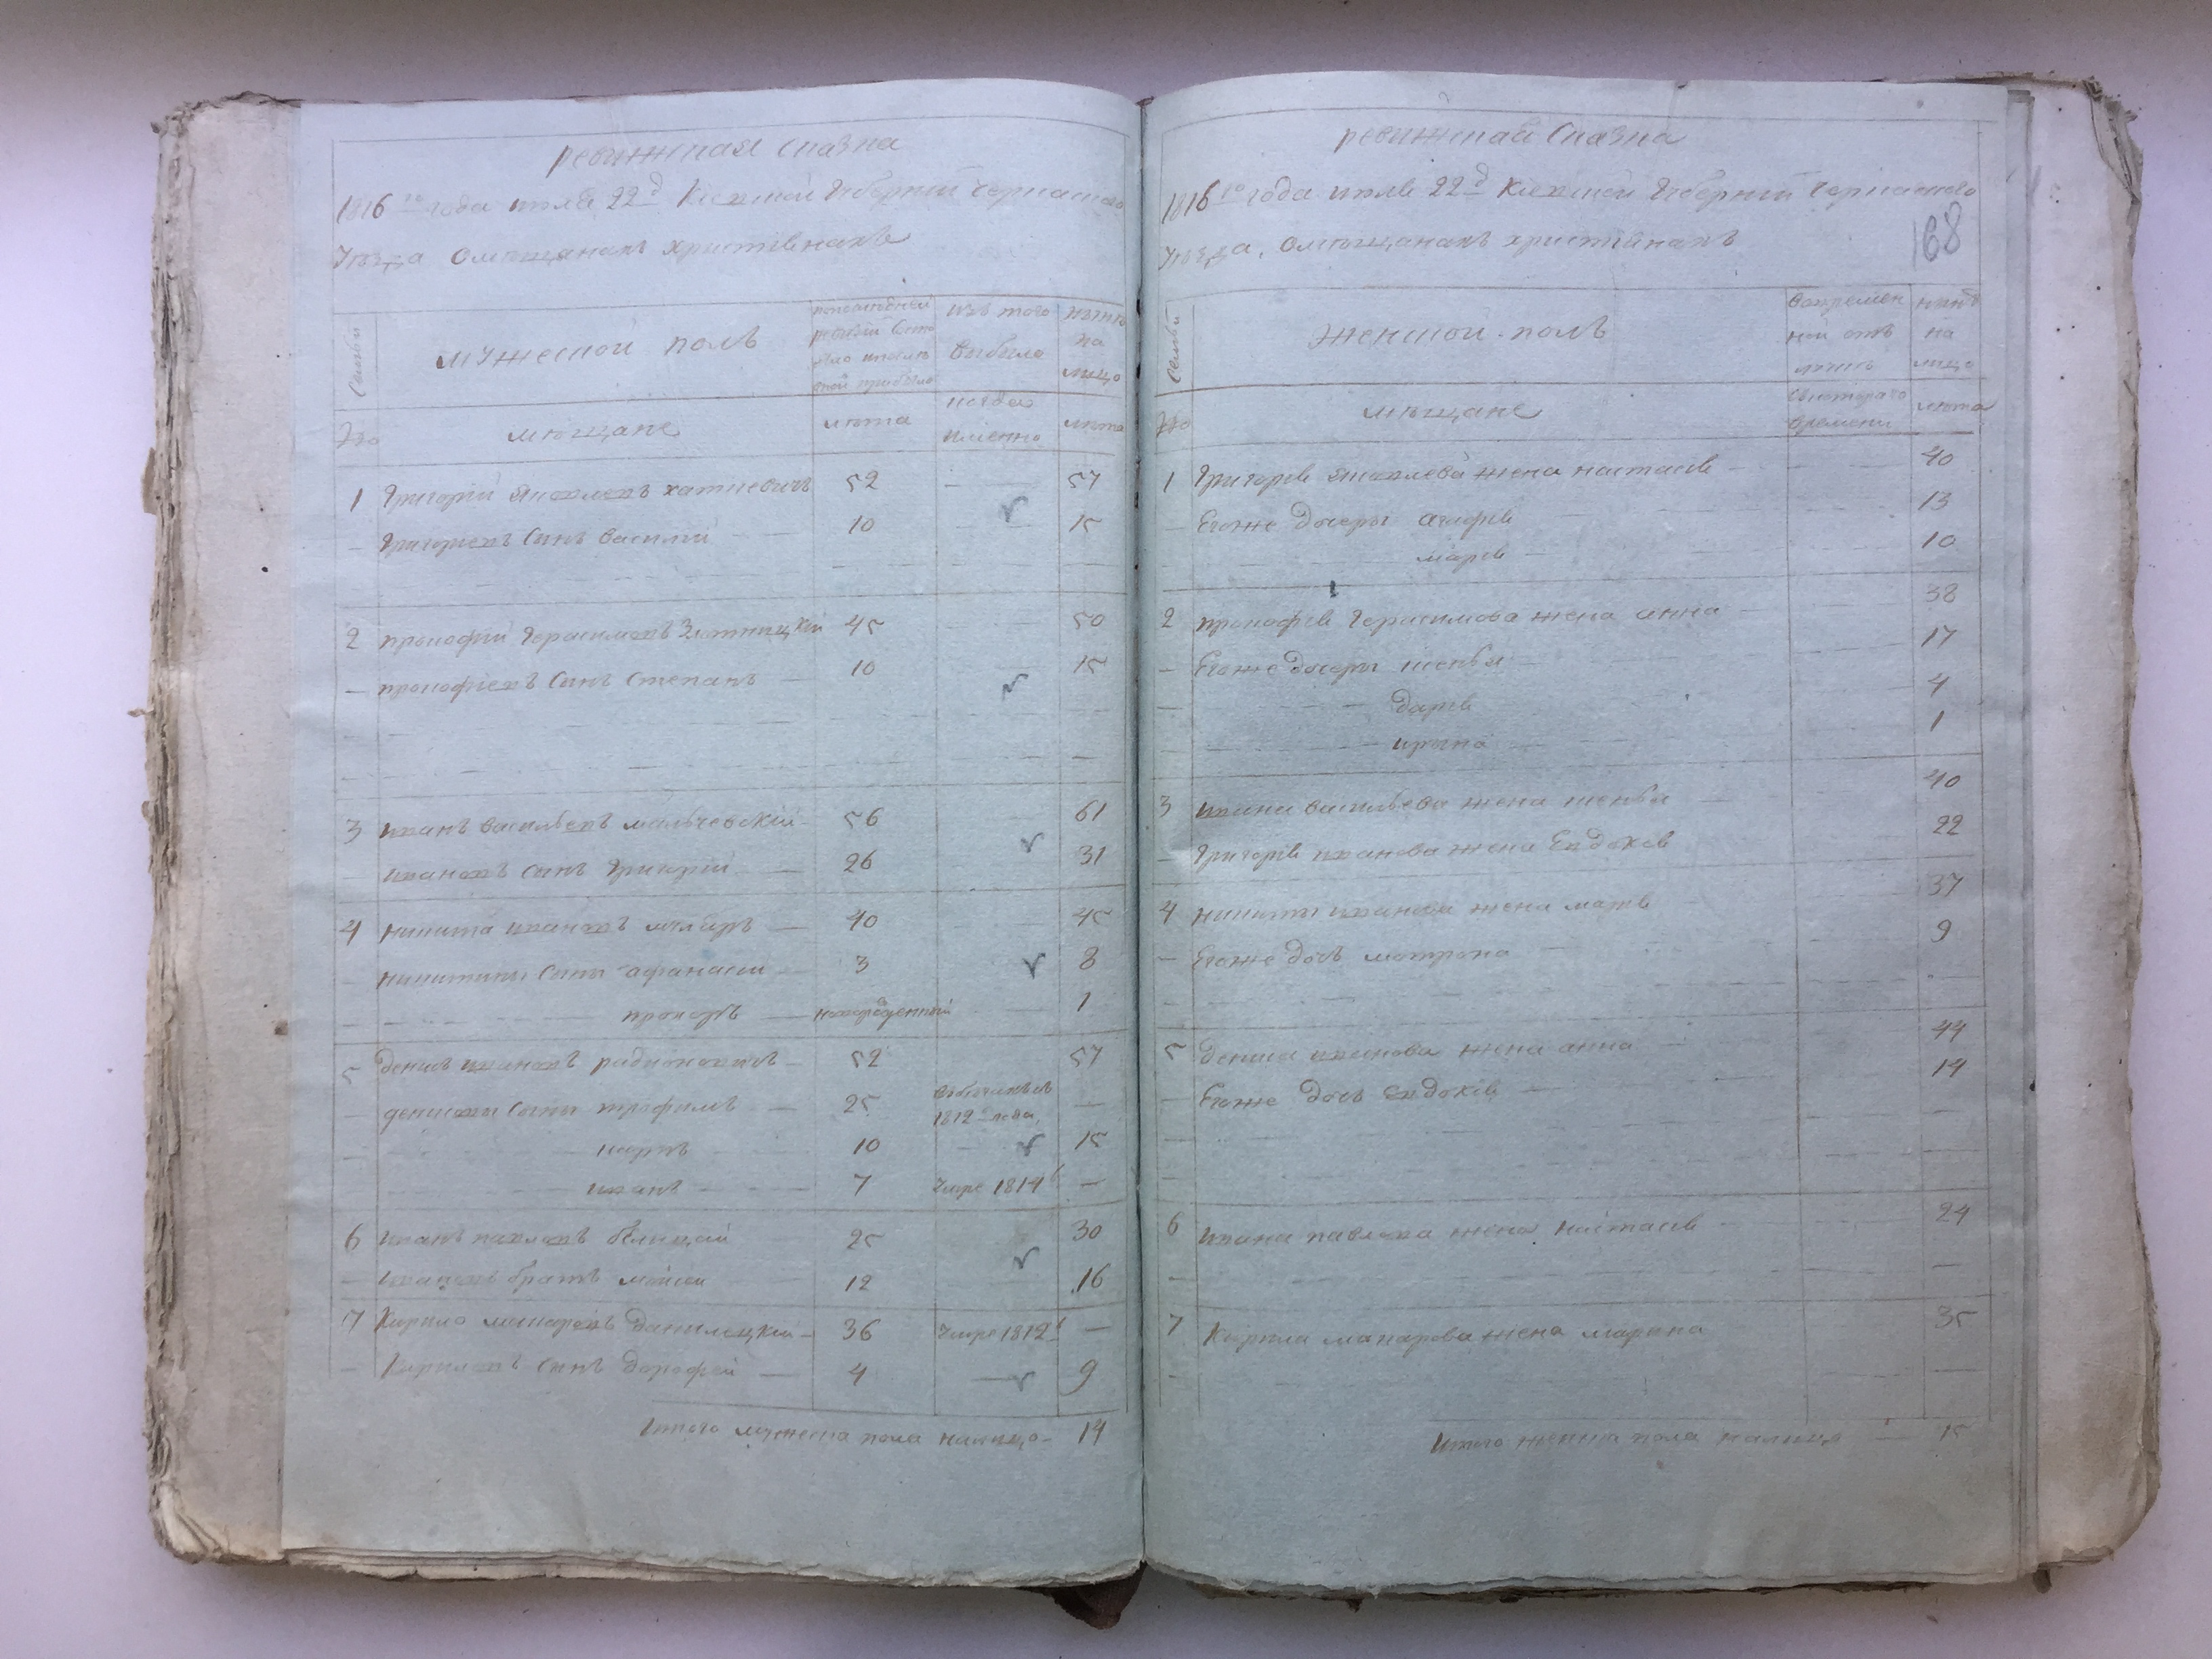 ревижская сказка
1816го года июля 22д Киевской Губернии Черкаского
Уезда О мещанах христианах
Семьи
мужеской полъ
по последней ревизии состояло и после оной прибыло
изъ того выбыло
ныне на лицо
№
мещане
лета
когда именно
лета
1 Григорий Яковлевъ 52 — 57
Григориевъ Сынъ Василий 10 15
2 прокофий Герасимовъ 45 50
прокофиевъ Сынъ Степанъ 10 15
3 иванъ васильевъ мальчевский 56 61
ивановъ сынъ Григорий 26 31
4 никита ивановъ 40 45
никитины Сыны афанасий 3 8
прокопъ новорожденный 1
5 денисъ ивановъ радионовичъ 52 57
денисовы Сыны трофимъ 25 1812 года —
карпъ 10 15
иванъ 7 умре 1814 —
6 иванъ павловъ 25 30
ивановъ братъ мойсей 12 16
7 Кирило макаревъ Данилецкий 36 умре 1812 —
Кириловъ Сынъ Дорофей 4 — 9
Итого мужеска пола налицо 14
ревижская Сказка
1816го года июля 22д Киевской Губернии Черкаского
Уезда, О мещанахъ христианахъ
168
Семьи
Женской полъ
во временной отлучке
ныне на лицо
№
мещане
с которого времени
лета
1 Григория Яковлева жена настасия 40
Егоже дочеры агафия 13
мария 10
2 прокофия Герасимова жена анна 38
Егоже дочеры 17
дария 4
ирына 1
3 ивана васильева жена 40
Григория иванова жена Евдокия 22
4 никиты иванова жена 37
Егоже дочь мотрона 9
5 дениса иванова жена анна 44
Егоже дочь Евдокия 14
6 ивана павлова жена настасия 24
7 Кирила макарова жена марина 35
Итого женска пола налицо 15